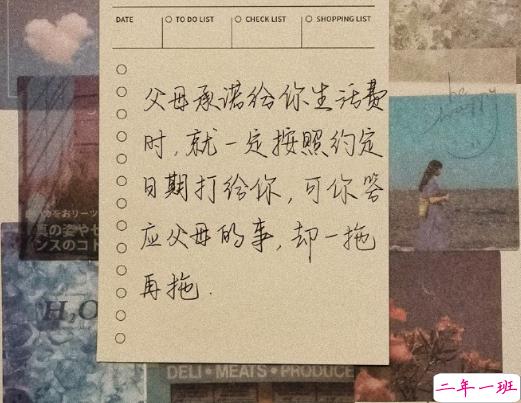 DATE
TO DO LIST
CHECK LIST
SHOPPING LIST
父母承诺给你生活费
时,就一定按照约定
日期打给你,可你答
应父母的事,却一拖
再拖.
happy
をおリーツ
真の姿やセ
ンスのコト
H₂O
DELI • MEATS • PRODUCE
二年一班